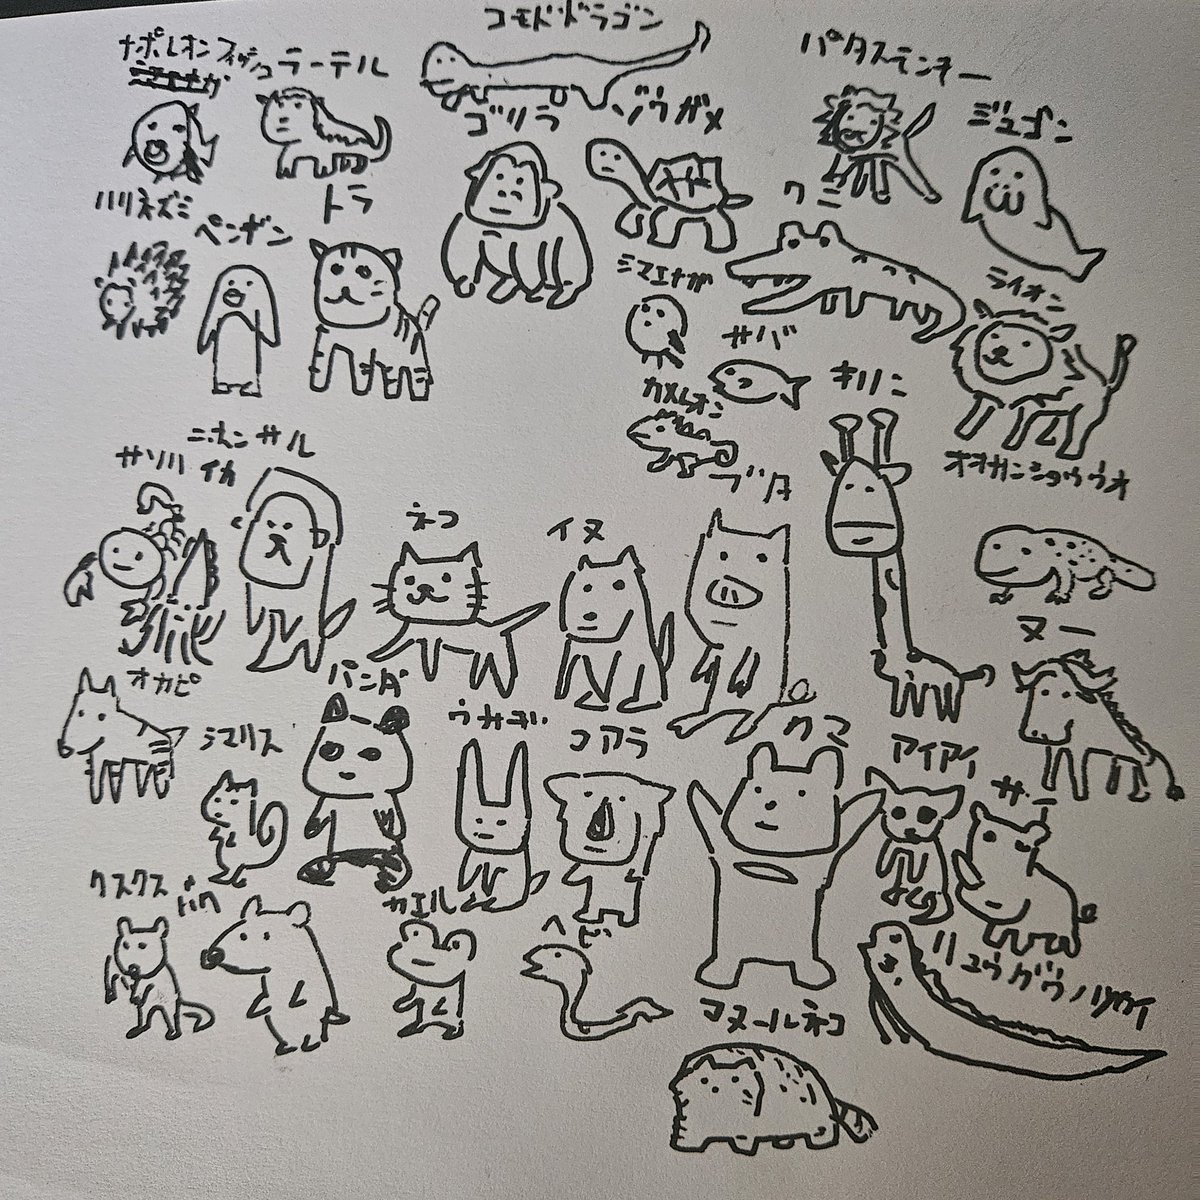 コモドドラゴン
ナポレオンフィッシュ
ラーテル
パタスモンキー
ゴリラ
ゾウガメ
ジュゴン
ハリネズミ
ペンギン
トラ
ワニ
シマエナガ
ライオン
サバ
カメレオン
キリン
ニホンザル
サソリ
イカ
ネコ
イヌ
ブタ
オオサンショウウオ
ヌー
オカピ
パンダ
シマリス
ウサギ
コアラ
クマ
アイアイ
サイ
クスクス
バク
カエル
ヘビ
リュウグウノツカイ
マヌールネコ